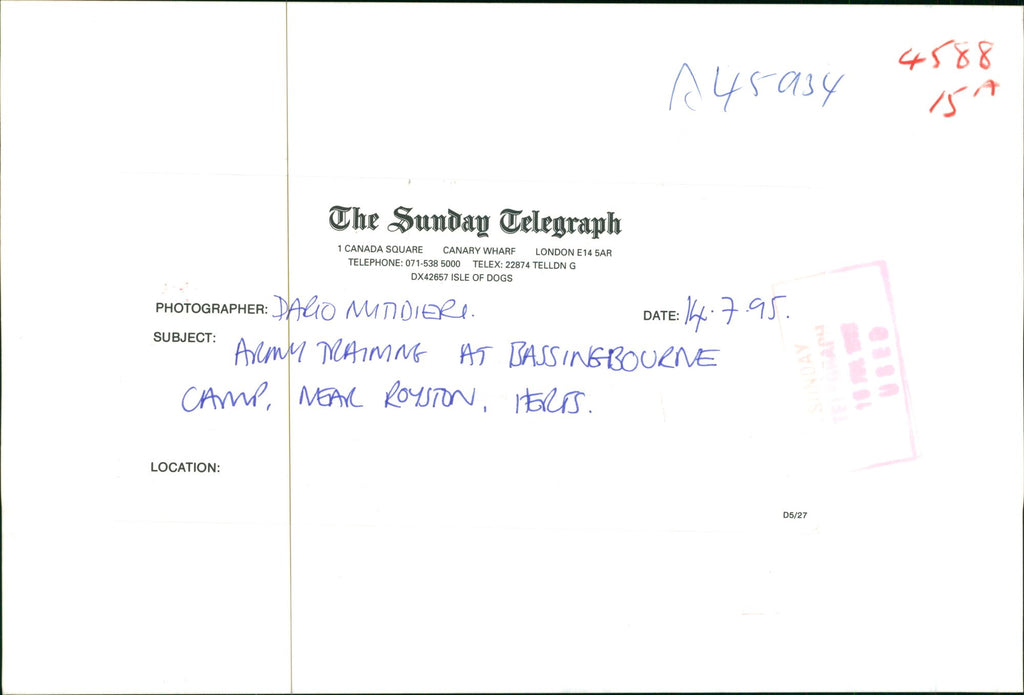 A45934
4588
15A
The Sunday Telegraph
1 CANADA SQUARE CANARY WHARF LONDON E14 5AR
TELEPHONE: 071-538 5000 TELEX: 22874 TELLDN G
DX42657 ISLE OF DOGS
PHOTOGRAPHER: DARIO MITIDIERI. DATE: 14.7.95.
SUBJECT: ARMY TRAINING AT BASSINGBOURNE
CAMP, NEAR ROYSTON, HERTS.
SUNDAY
TELEGRAPH
USED
LOCATION:
D5/27